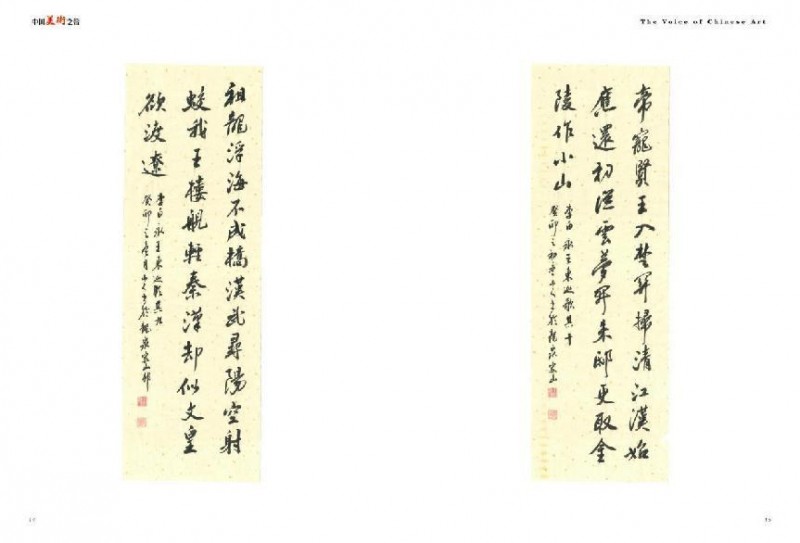 中国美術之音
The Voice of Chinese Art
祖龍浮海不成橋漢武尋陽空射
蛟我王樓艦輕秦漢却似文皇
欲渡遼
李白永王東巡歌其九
帝寵賢王入楚關掃清江漢始
應還初從雲夢開朱邸更取金
陵作小山
李白永王東巡歌其十